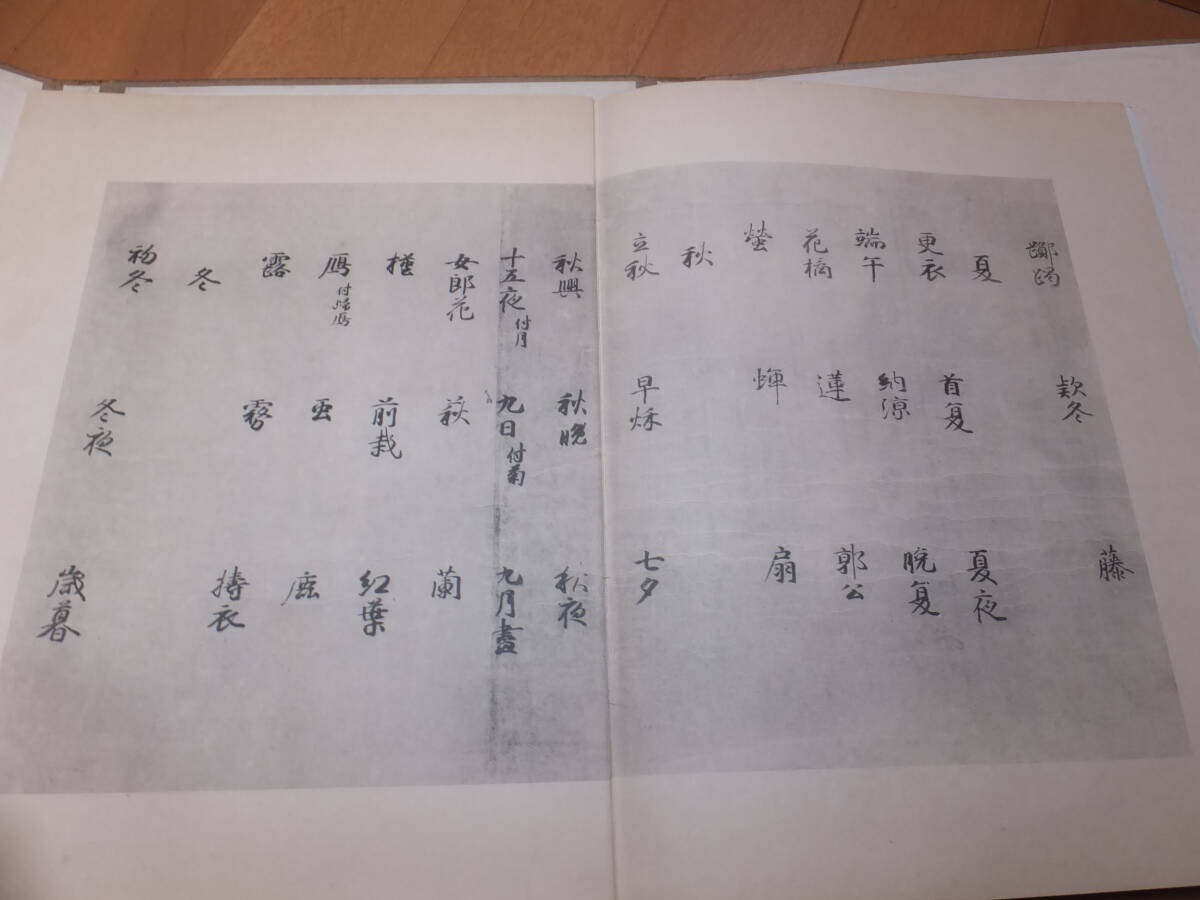 躑躅 款冬 藤
夏
更衣 首夏 夏夜
端午 納涼 晩夏
花橘 蓮 郭公
螢 蝉 扇
秋
立秋 早秋 七夕
秋興 秋晩 秋夜
十五夜付月 九日付菊 九月盡
女郎花 萩 蘭
槿 前栽 紅葉
鴈付帰鴈 虫 鹿
露 霧 擣衣
冬
初冬 冬夜 歳暮